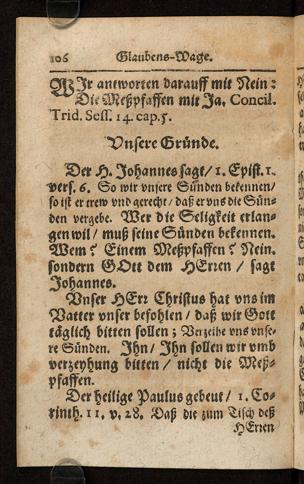 106 Glaubens-Wage.
WIr antworten darauff mit Nein:
Die Meßpfaffen mit Ja, Concil.
Trid. Sess. 14. cap. 5.
Vnsere Gründe.
Der H. Johannes sagt/ 1. Epist. 1.
vers. 6. So wir vnsere Sünden bekennen/
so ist er trew vnd gerecht/ daß er vns die Sün-
den vergebe. Wer die Seligkeit erlan-
gen wil/ muß seine Sünden bekennen.
Wem? Einem Meßpfaffen? Nein.
sondern GOtt dem HErren/ sagt
Johannes.
Vnser HErr Christus hat vns im
Vatter vnser befohlen/ daß wir Gott
täglich bitten sollen; Verzeihe vns vnse-
re Sünden. Ihn/ Ihn sollen wir vmb
verzeyhung bitten/ nicht die Meß-
pfaffen.
Der heilige Paulus gebeut/ 1. Co-
rinth. 11. v. 28. Daß die zum Tisch deß
HErren